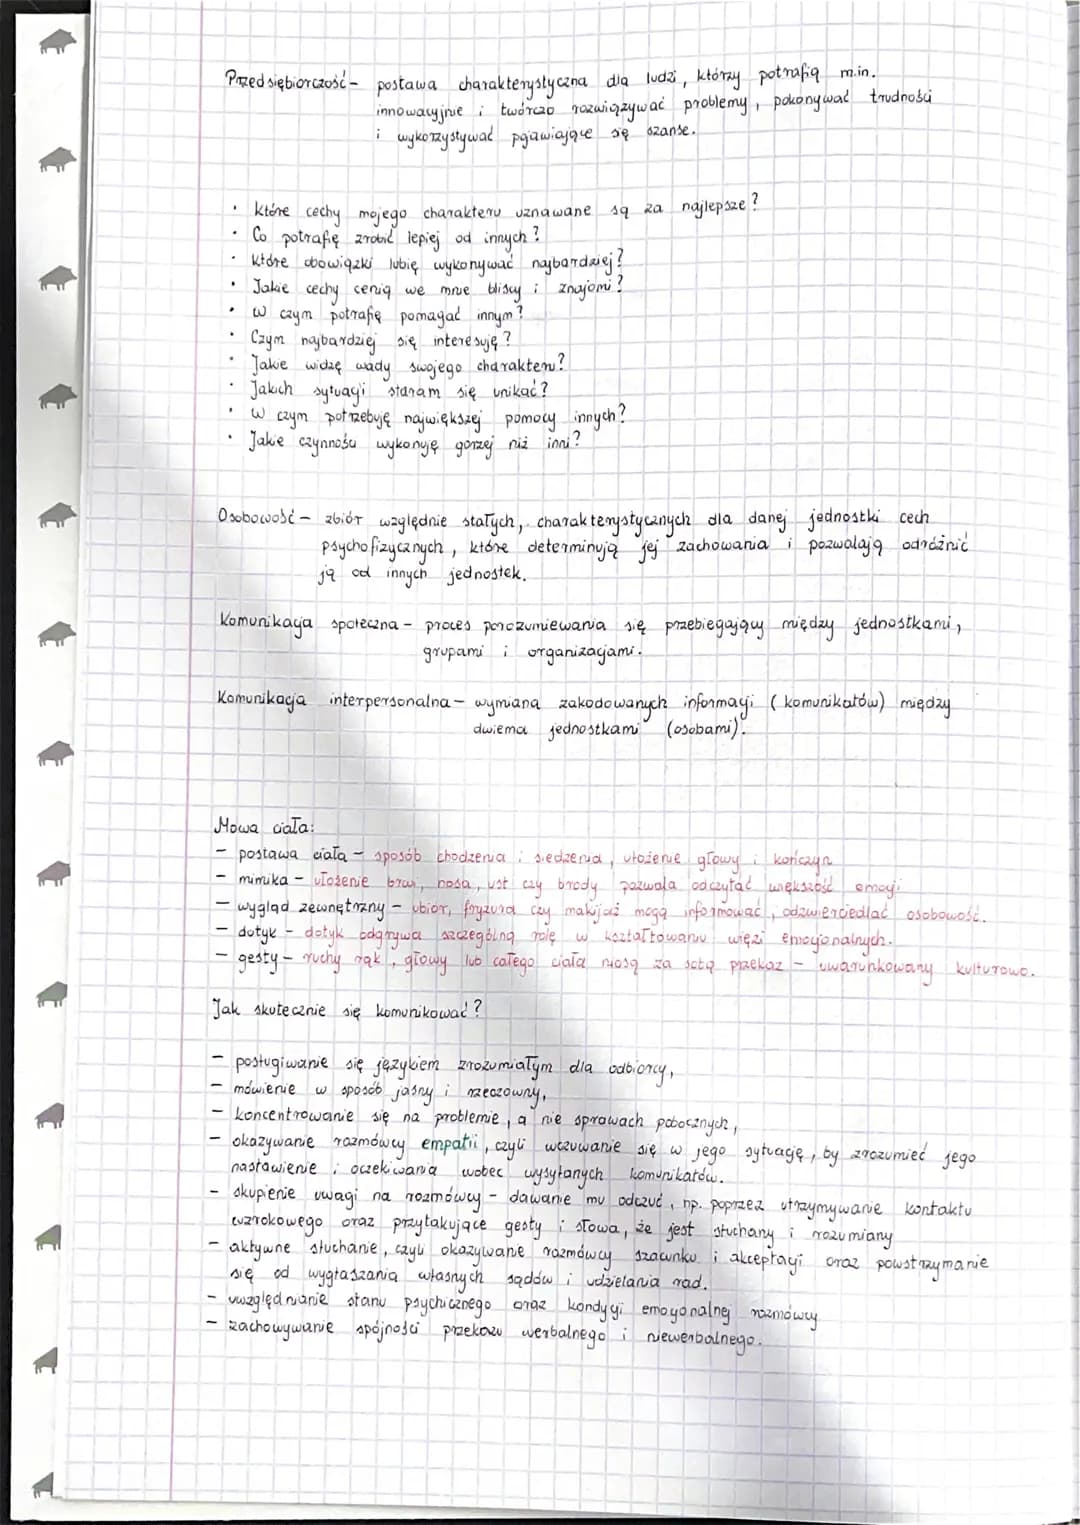 Przedsiębiorczość - postawa charakterystyczna dla ludzi, którzy potrafią m.in.
innowacyjnie i twórczo rozwiązywać problemy, pokonywać trudności
i wykorzystywać pojawiające się szanse.
• Które cechy mojego charakteru uznawane są za najlepsze?
• Co potrafię zrobić lepiej od innych?
• Które obowiązki lubię wykonywać najbardziej?
• Jakie cechy cenią we mnie bliscy i znajomi?
• W czym potrafię pomagać innym?
• Czym najbardziej się interesuję?
• Jakie widzę wady swojego charakteru?
• Jakich sytuacji staram się unikać?
• W czym potrzebuję największej pomocy innych?
• Jakie czynności wykonuję gorzej niż inni?
Osobowość - zbiór względnie stałych, charakterystycznych dla danej jednostki cech
psychofizycznych, które determinują jej zachowania i pozwalają odróżnić
ją od innych jednostek.
Komunikacja społeczna - proces porozumiewania się przebiegający między jednostkami,
grupami i organizacjami.
Komunikacja interpersonalna - wymiana zakodowanych informacji (komunikatów) między
dwiema jednostkami (osobami).
Mowa ciała:
- postawa ciała - sposób chodzenia i siedzenia, ułożenie głowy i kończyn
- mimika - ułożenie brwi, nosa, ust czy brody pozwala odczytać większość emocji
- wygląd zewnętrzny - ubiór, fryzura czy makijaż mogą informować, odzwierciedlać osobowość.
- dotyk - dotyk odgrywa szczególną rolę w kształtowaniu więzi emocjonalnych.
- gesty - ruchy rąk, głowy lub całego ciała niosą za sobą przekaz - uwarunkowany kulturowo.
Jak skutecznie się komunikować?
- posługiwanie się językiem zrozumiałym dla odbiorcy,
- mówienie w sposób jasny i rzeczowny,
- koncentrowanie się na problemie, a nie sprawach pobocznych,
- okazywanie rozmówcy empatii, czyli wczuwanie się w jego sytuację, by zrozumieć jego
nastawienie i oczekiwania wobec wysyłanych komunikatów.
- skupienie uwagi na rozmówcy - dawanie mu odczuć, np. poprzez utrzymywanie kontaktu
wzrokowego oraz przytakujące gesty i słowa, że jest słuchany i rozumiany
- aktywne słuchanie, czyli okazywanie rozmówcy szacunku i akceptacji oraz powstrzymanie
się od wygłaszania własnych sądów i udzielania rad.
- uwzględnianie stanu psychicznego oraz kondycji emocjonalnej rozmówcy
- zachowywanie spójności przekazu werbalnego i niewerbalnego.